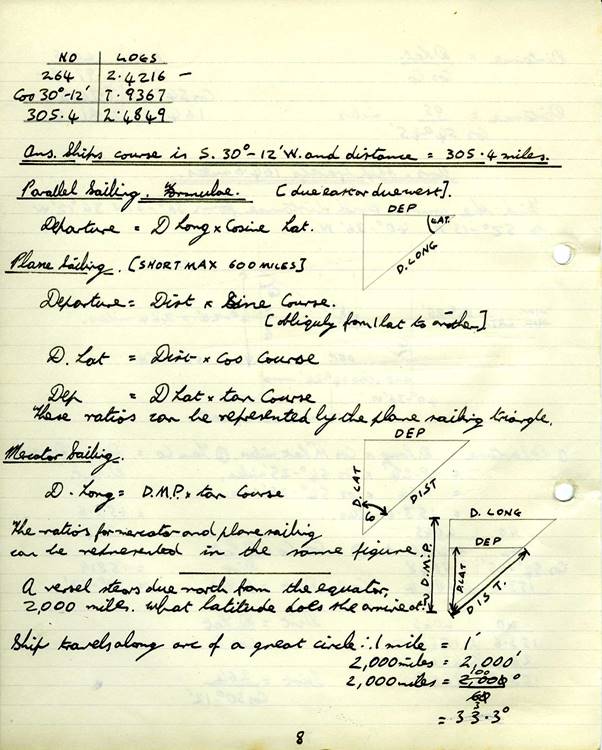 NO LOGS
264 2.4216 –
Cos 30°-12' T.9367
305.4 2.4849
Ans. Ships course is S. 30°-12' W. and distance = 305.4 miles.
Parallel Sailing. Formulae. [due east or due west].
DEP
LAT.
D. LONG
Departure = D Long x Cosine Lat.
Plane Sailing. [SHORT MAX 600 MILES]
Departure = Dist x Sine Course.
[obliquly from 1 lat to another]
D. Lat = Dist x Cos Course
Dep = D Lat x tan Course
These ratios can be represented by the plane sailing triangle.
DEP
D. LAT
DIST
Mercator Sailing.
D. Long = D.M.P. x tan Course
D. LONG
DEP
D.M.P.
D.LAT
DIST.
The ratios for mercator and plane sailing
can be represented in the same figure
A vessel steers due north from the equator,
2,000 miles. What latitude does she arrive at?
Ship travels along arc of a great circle ∴ 1 mile = 1'
2,000 miles = 2,000'
100
2,000 miles = 2,000°
60
3
= 33.3°
8